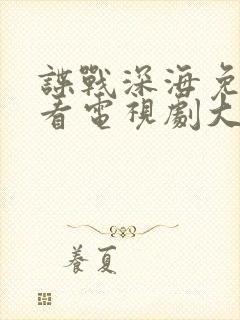 諜戰深海免
看電視劇大
養夏